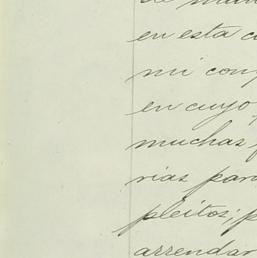 en esta
mi con
en cuyo
muchas
rias par
pleitos; p
arrendar